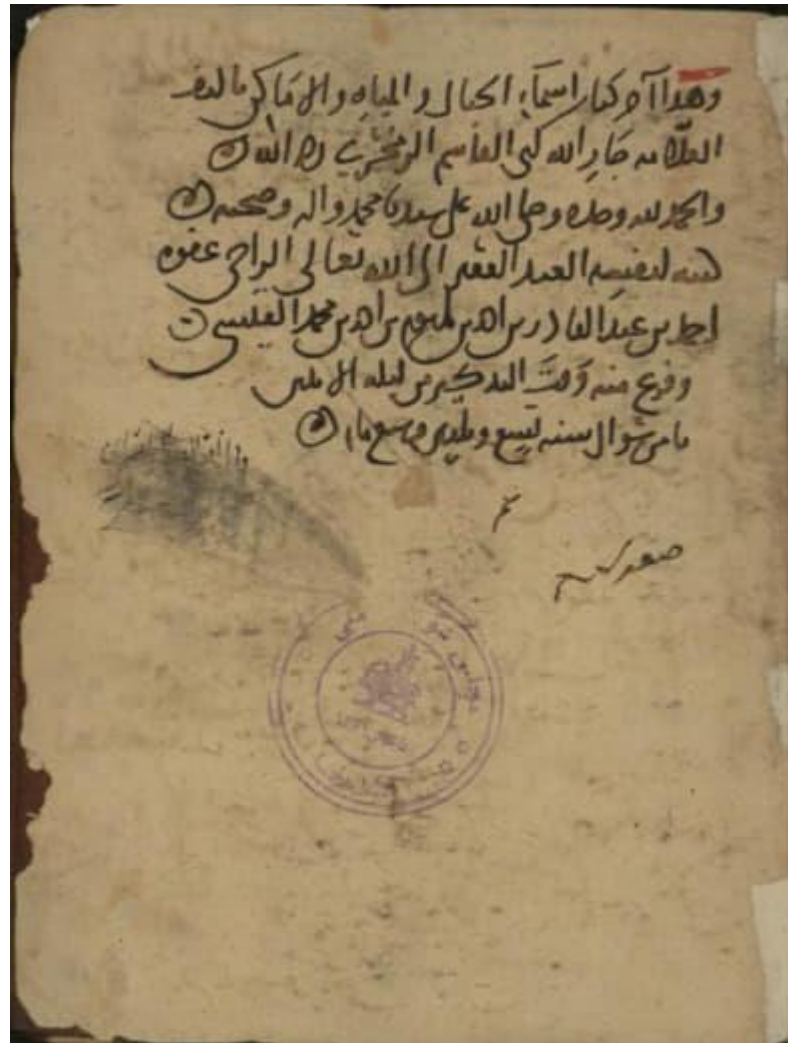 وهذا آخر كتاب اسماء الجبال والمياه والاماكن تاليف
العلامه جار الله ابي القاسم الزمخشري رحمه الله
والحمد لله وحده وصلى الله على سيدنا محمد واله وصحبه
كتبه لنفسه العبد الفقير الى الله تعالى الراجي عفوه
احمد بن عبد القادر بن احمد بن مكتوم بن احمد بن محمد القيسي
وفرغ منه وقت التذكير من ليله الاثنين
ثامن شوال سنه تسع وثلثين وسبع مايه